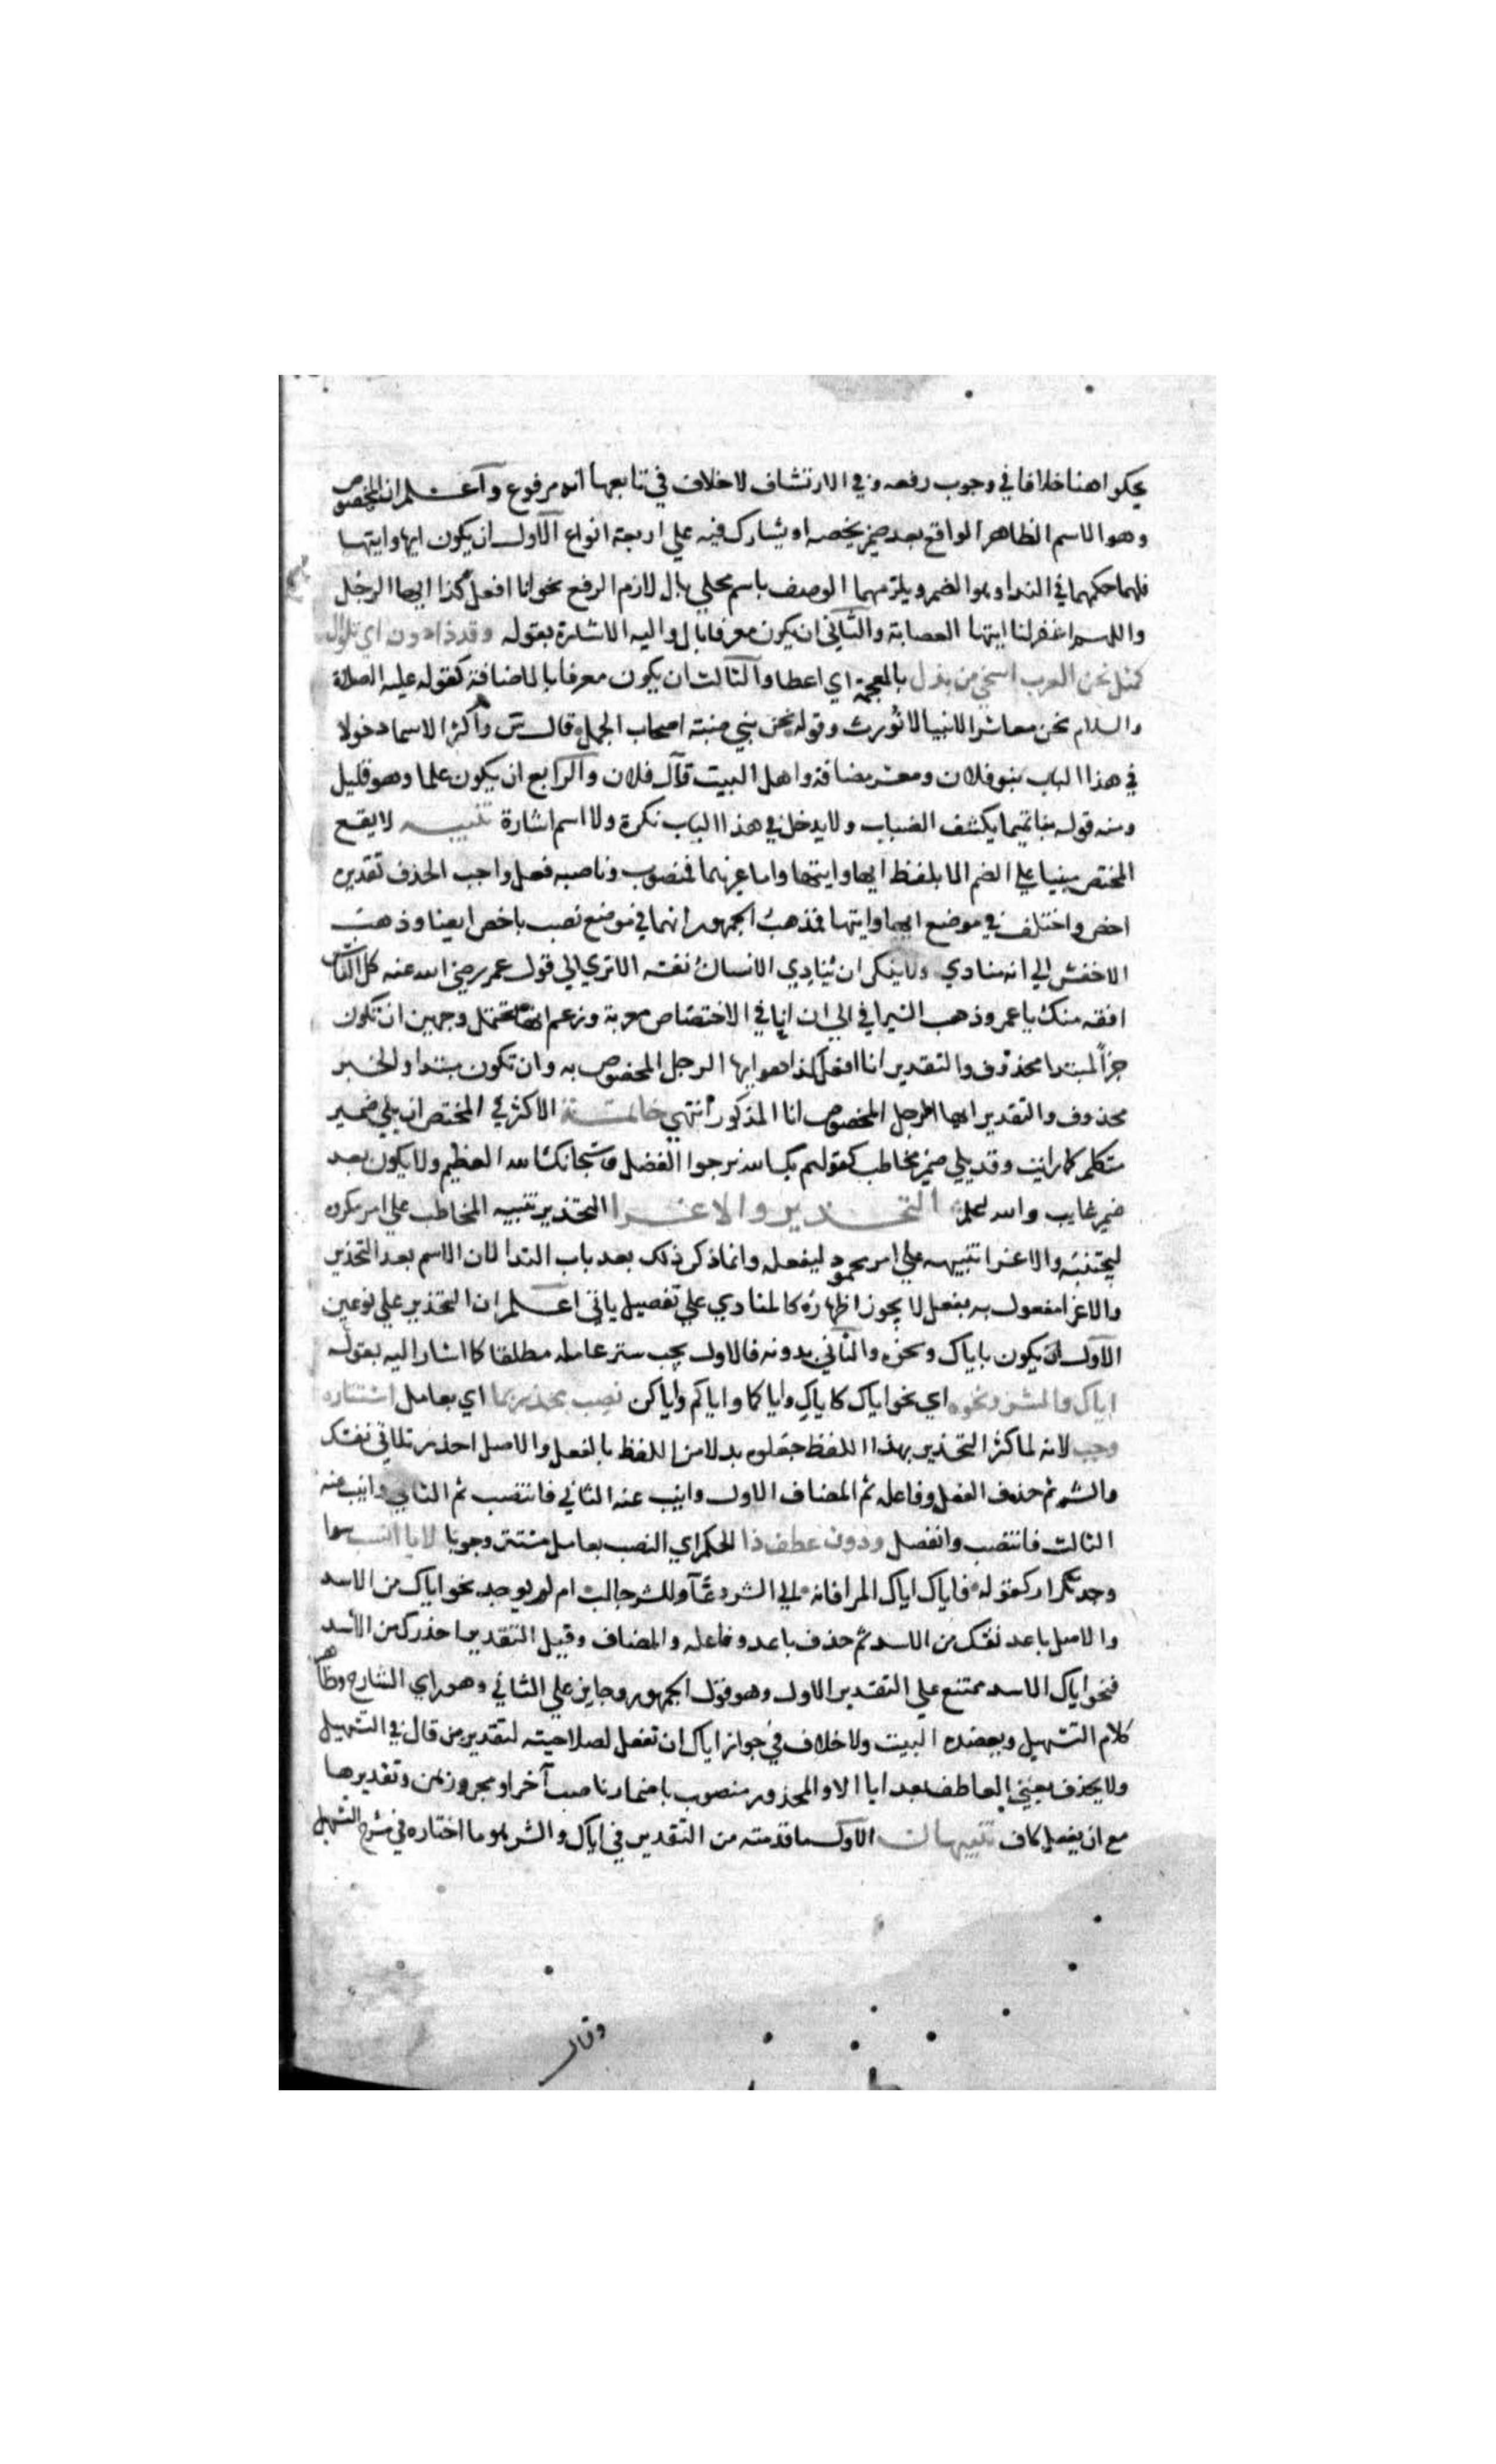 يحكوا هنا خلافا في وجوب رفعه وفي الارتشاف لا خلاف في تابعها انه مرفوع واعلم ان المخصوص
وهو الاسم الظاهر الواقع بعد ضمير يخصه او يشارك فيه علي اربعة انواع الاول ان يكون ايها وايتها
فلهما حكمهما في الندا وهو الضم ويلزمهما الوصف باسم محلي بال لازم الرفع نحو انا افعل كذا ايها الرجل
واللهم اغفر لنا ايتها العصابة والثاني ان يكون معرفا بال واليه الاشارة بقوله وقد يري ذا دون اي تلو ال
كمثل نحن العرب اسخي من بذل بالمعجمة اي اعطا والثالث ان يكون معرفا بالاضافة كقوله عليه الصلاة
والسلام نحن معاشر الانبيا لا نورث وقوله نحن بني ضبة اصحاب الجمل قال س واكثر الاسما دخولا
في هذا الباب بنو فلان ومعشر مضافة واهل البيت وآل فلان والرابع ان يكون علما وهو قليل
ومنه قوله بنا تميما يكشف الضباب ولا يدخل في هذا الباب نكرة ولا اسم اشارة تنبيه لا يقع
المختص مبنيا علي الضم الا بلفظ ايها وايتها واما غيرهما فمنصوب وناصبه فعل واجب الحذف تقديره
اخص واختلف في موضع ايها وايتها فمذهب الجمهور انهما في موضع نصب باخص ايضا وذهب
الاخفش الي انه منادي ولا ينكر ان ينادي الانسان نفسه الا تري الي قول عمر رضي الله عنه كل الناس
افقه منك يا عمر وذهب السيرافي الي ان ايا في الاختصاص معربة وزعم انها تحتمل وجهين ان تكون
خبرا لمبتدا محذوف والتقدير انا افعل كذا هو ايها الرجل المخصوص به وان تكون مبتدا والخبر
محذوف والتقدير ايها الرجل المخصوص انا المذكور انتهي خاتمة الاكثر في المختص ان يلي ضمير
متكلم كما رايت وقد يلي ضمير مخاطب كقولهم بك الله نرجوا الفضل وسبحانك الله العظيم ولا يكون بعد
ضمير غايب والله اعلم التحذير والاغرا التحذير تنبيه المخاطب علي امر مكروه
ليجتنبه والاغرا تنبيهه علي امر محمود ليفعله وانما ذكر ذلك بعد باب الندا لان الاسم بعد التحذير
والاغرا مفعول به بفعل لا يجوز اظهاره كالمنادي علي تفصيل ياتي اعلم ان التحذير علي نوعين
الاول ان يكون باياك ونحوه والثاني بدونه فالاول يجب ستر عامله مطلقا كما اشار اليه بقوله
اياك والشر ونحوه اي نحو اياك كاياك واياكما واياكم واياكن نصب محذر بما اي بعامل استتاره
وجب لانه لما كثر التحذير بهذا اللفظ جعلوه بدلا من اللفظ بالفعل والاصل احذر تلاقي نفسك
والشر ثم حذف الفعل وفاعله ثم المضاف الاول وانيب عنه الثاني فانتصب ثم الثاني وانيب عنه
الثالث فانتصب وانفصل ودون عطف ذا الحكم اي النصب بعامل مستتر وجوبا لايا انسب سوا
وجد تكرار كقوله فاياك اياك المرا فانه الي الشر دعّآ وللشر جالب ام لم يوجد نحو اياك من الاسد
والاصل باعد نفسك من الاسد ثم حذف باعد وفاعله والمضاف وقيل التقدير احذرك من الأسد
فنحو اياك الاسد ممتنع علي التقدير الاول وهو قول الجمهور وجايز علي الثاني وهو راي الشارح وظاهر
كلام التسهيل ويعضده البيت ولا خلاف في جواز اياك ان تفعل لصلاحيته لتقدير من قال في التسهيل
ولا يحذف يعني العاطف بعد ايا الا والمحذور منصوب باضمار ناصب آخر او مجرور بمن وتقديرها
مع ان يفعل كاف تنبيهات الاول ما قدمته من التقدير في اياك والشر هو ما اختاره في شرح التسهيل
وقال